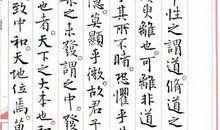 性之謂道脩道之
臾離也可離非道
其所不睹恐懼乎
隱莫顯乎微故君子
樂之未發謂之中發
也者天下之大本也和
致中和天地位焉萬